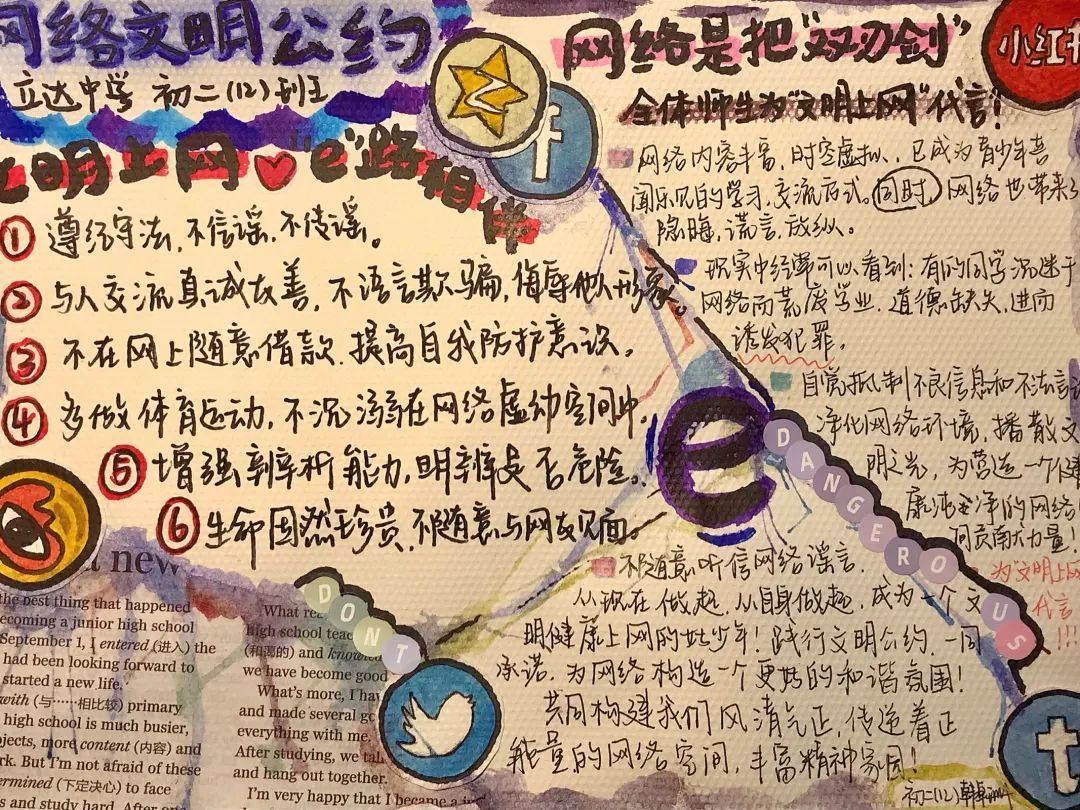 网络文明公约
立达中学 初二(12)班
文明上网 "e"路相伴
① 遵纪守法,不信谣,不传谣。
② 与人交流真诚友善,不语言欺骗,侮辱他人形象。
③ 不在网上随意借款.提高自我防护意识。
④ 多做体育运动,不沉溺在网络虚幻空间中。
⑤ 增强辨析能力,明辨是否危险。
⑥ 生命固然珍贵,不随意与网友见面。
a new
the best thing that happened
becoming a junior high school
September 1, I entered (进入) the
had been looking forward to
started a new life.
with (与……相比较) primary
high school is much busier,
more content (内容) and
But I'm not afraid of these
(下定决心) to face
and study hard.
What
high school
(和蔼的) and
we have become good
What's more, I
and made several
everything with me.
After studying, we
and hang out together.
I'm very happy that I became a
f
e
DONT
DANGEROUS
t
网络是把"双刃剑"
小红书
全体师生为"文明上网"代言!
网络内容丰富,时空虚拟,已成为青少年喜
闻乐见的学习,交流方式。同时,网络也带来了
隐晦,谎言,放纵。
现实中经常可以看到:有的同学沉迷于
网络而荒废学业.道德缺失,进而
诱发犯罪。
自觉抵制不良信息和不法言
净化网络环境,播散文
明之光,为营造一个健
康洁净的网络
间贡献大力量!
为"文明上网"
代言
!!!
不随意听信网络谣言.
从现在做起.从自身做起,成为一个文
明健康上网的好少年!践行文明公约.一同
承诺.为网络构造一个更好的和谐氛围!
共同构建我们风清气正,传递着正
能量的网络空间,丰富精神家园!
初二(12)